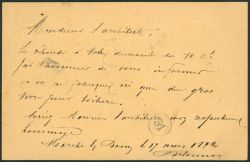 Monsieur l'architecte,
En réponse à votre demande du 10 ct
j'ai l'honneur de vous informer
qu'on ne fabrique ici que de gros
pour toiture.
Agréez Monsieur l'architecte mes respectueux
hommages
Marche le 17 mars 1892